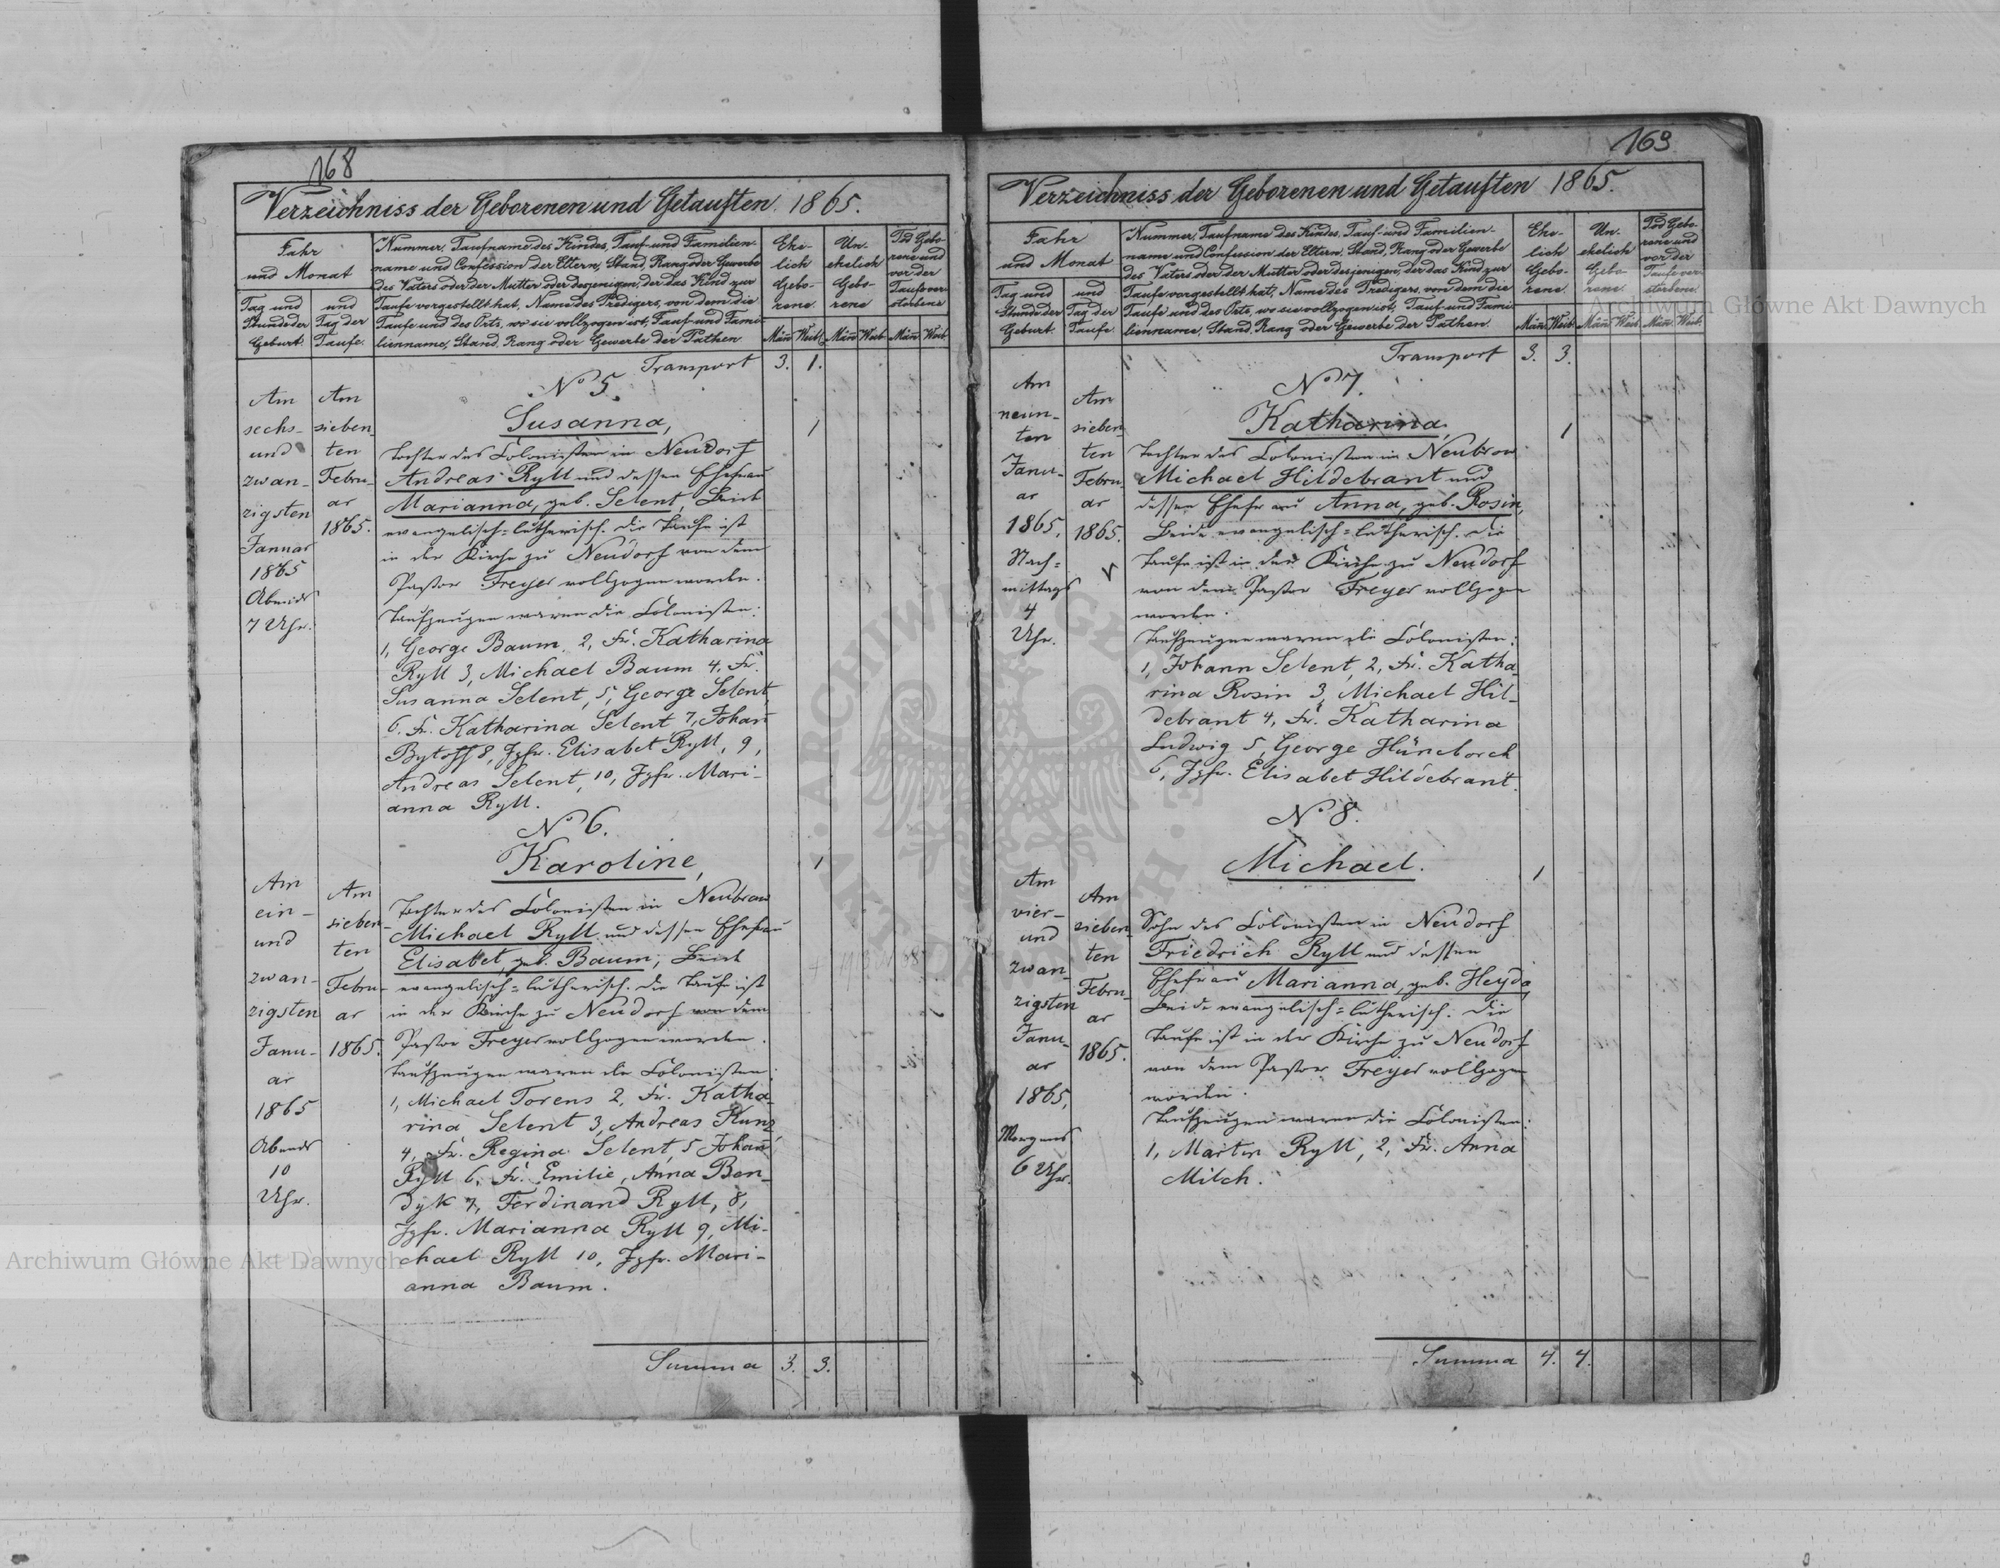 168
Verzeichniss der Geborenen und Getauften. 1865.
Jahr
und Monat
Tag und
Stunde der
Geburt.
und
Tag der
Taufe.
Nummer, Taufname des Kindes, Tauf- und Familien-
name und Confession der Eltern, Stand, Rang oder Gewerbe
des Vaters oder der Mutter oder desjenigen, der das Kind zur
Taufe vorgestellt hat, Name des Predigers, von dem die
Taufe und des Orts, wo sie vollzogen ist, Tauf- und Fami-
lienname, Stand, Rang oder Gewerbe der Pathen.
Ehe-
lich
Gebo-
rene.
Un-
ehelich
Gebo-
rene
Tod Gebo-
rene und
vor der
Taufe ver-
storbene
Män̄ Weib. Män̄ Weib Män̄ Weib
Transport 3. 1.
No 5.
Susanna, 1
Am
sechs-
und
zwan-
zigsten
Januar
1865
Abends
7 Uhr.
Am
sieben-
ten
Febru-
ar
1865.
Tochter des Colonisten in Neudorf
Andreas Ryll und dessen Ehefrau
Marianna, geb. Selent, Beide
evangelisch-lutherisch. Die Taufe ist
in der Kirche zu Neudorf von dem
Pastor Freyer vollzogen worden.
Taufzeugen waren die Colonisten:
1, George Baum, 2, Fr. Katharina
Ryll 3, Michael Baum 4, Fr.
Susanna Selent, 5, George Selent,
6. Fr. Katharina Selent 7, Johan̄
Bytoff 8, Jgfr. Elisabet Ryll, 9,
Andreas Selent, 10, Jgfr. Mari-
anna Ryll.
No 6.
Karoline, 1
Am
ein-
und
zwan-
zigsten
Janu-
ar
1865
Abends
10
Uhr.
Am
sieben-
ten
Febru-
ar
1865.
Tochter des Colonisten in Neubrow
Michael Ryll und dessen Ehefrau
Elisabet, geb. Baum, Beide
evangelisch-lutherisch. Die Taufe ist
in der Kirche zu Neudorf von dem
Pastor Freyer vollzogen worden.
Taufzeugen waren die Colonisten:
1, Michael Torens 2, Fr. Katha-
rina Selent 3, Andreas Kunz
4, Fr. Regina Selent, 5 Johan̄
Ryll 6, Fr. Emilie, Anna Ben-
dyk 7, Ferdinand Ryll, 8,
Jgfr. Marianna Ryll 9, Mi-
chael Ryll 10, Jgfr. Mari-
anna Baum.
Summa 3. 3.
169
Verzeichniss der Geborenen und Getauften 1865.
Jahr
und Monat
Tag und
Stunde der
Geburt.
und
Tag der
Taufe.
Nummer, Taufname des Kindes, Tauf- und Familien-
name und Confession der Eltern, Stand, Rang oder Gewerbe
des Vaters oder der Mutter oder desjenigen, der das Kind zur
Taufe vorgestellt hat, Name des Predigers, von dem die
Taufe und des Orts, wo sie vollzogen ist, Tauf- und Fami-
lienname, Stand, Rang oder Gewerbe der Pathen.
Ehe-
lich
Gebo-
rene.
Un-
ehelich
Gebo-
rene.
Tod Gebo-
rene und
vor der
Taufe ver-
storbene.
Män̄ Weib. Män̄ Weib. Män̄ Weib.
Transport 3. 3.
No 7.
Katharina, 1
Am
neun-
ten
Janu-
ar
1865.
Nach-
mittags
4
Uhr.
Am
sieben-
ten
Febru-
ar
1865.
Tochter des Colonisten in Neubrow
Michael Hildebrant und
dessen Ehefrau Anna, geb. Rosin,
Beide evangelisch-lutherisch. Die
Taufe ist in der Kirche zu Neudorf
von dem Pastor Freyer vollzogen
worden.
Taufzeugen waren die Colonisten:
1, Johann Selent, 2, Fr. Katha-
rina Rosin 3, Michael Hil-
debrant 4, Fr. Katharina
Ludwig 5, George Hüneborch
6, Jgfr. Elisabet Hildebrant.
No 8.
Michael. 1
Am
vier-
und
zwan
zigsten
Janu-
ar
1865,
Morgens
6 Uhr.
Am
sieben-
ten
Febru-
ar
1865.
Sohn des Colonisten in Neudorf
Friedrich Ryll und dessen
Ehefrau Marianna, geb. Heyda,
Beide evangelisch-lutherisch. Die
Taufe ist in der Kirche zu Neudorf
von dem Pastor Freyer vollzogen
worden.
Taufzeugen waren die Colonisten:
1, Martin Ryll, 2, Fr. Anna
Milch.
Summa 4. 4.
Archiwum Główne Akt Dawnych
Archiwum Główne Akt Dawnych